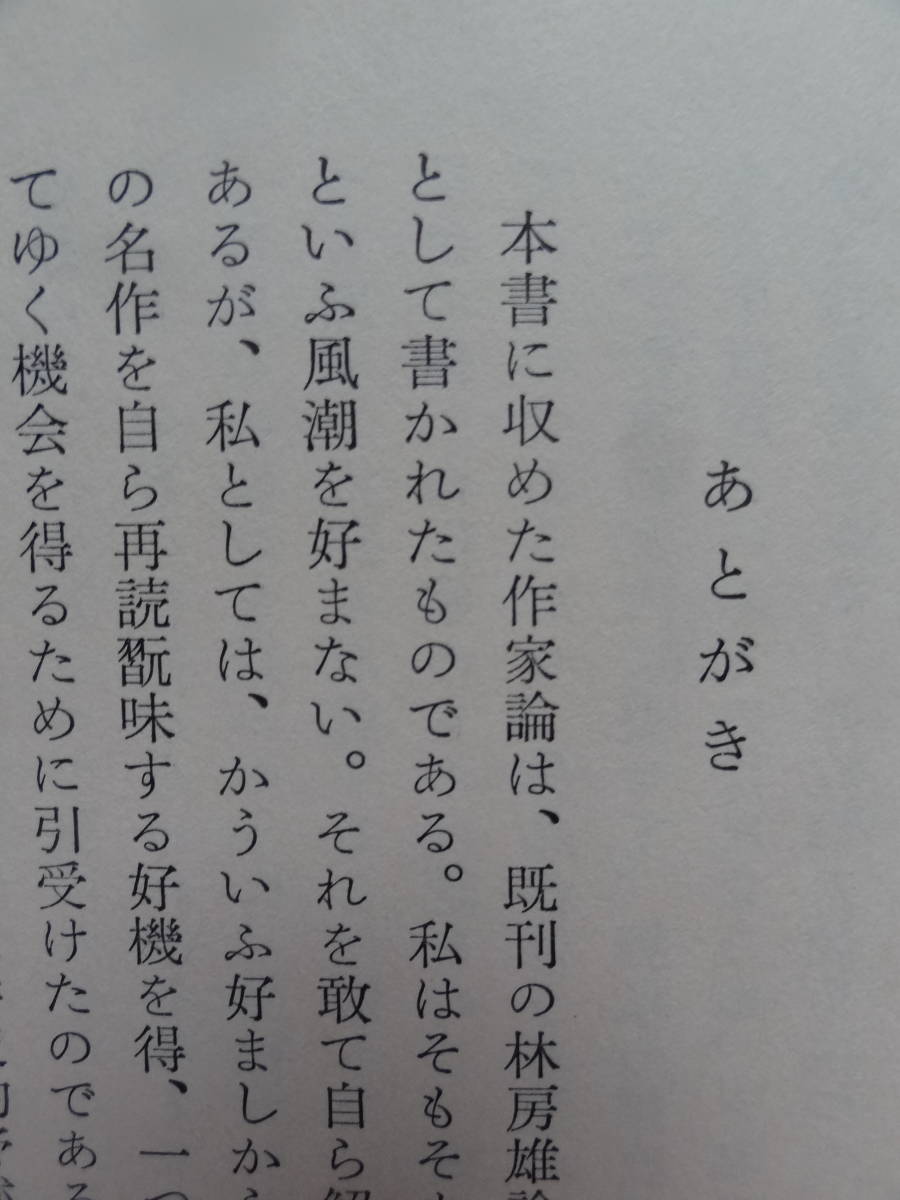 あとがき
本書に収めた作家論は、既刊の林房雄論
として書かれたものである。私はそもそ
といふ風潮を好まない。それを敢て自ら
あるが、私としては、かういふ好ましか
の名作を自ら再読翫味する好機を得、一つ
てゆく機会を得るために引受けたのである